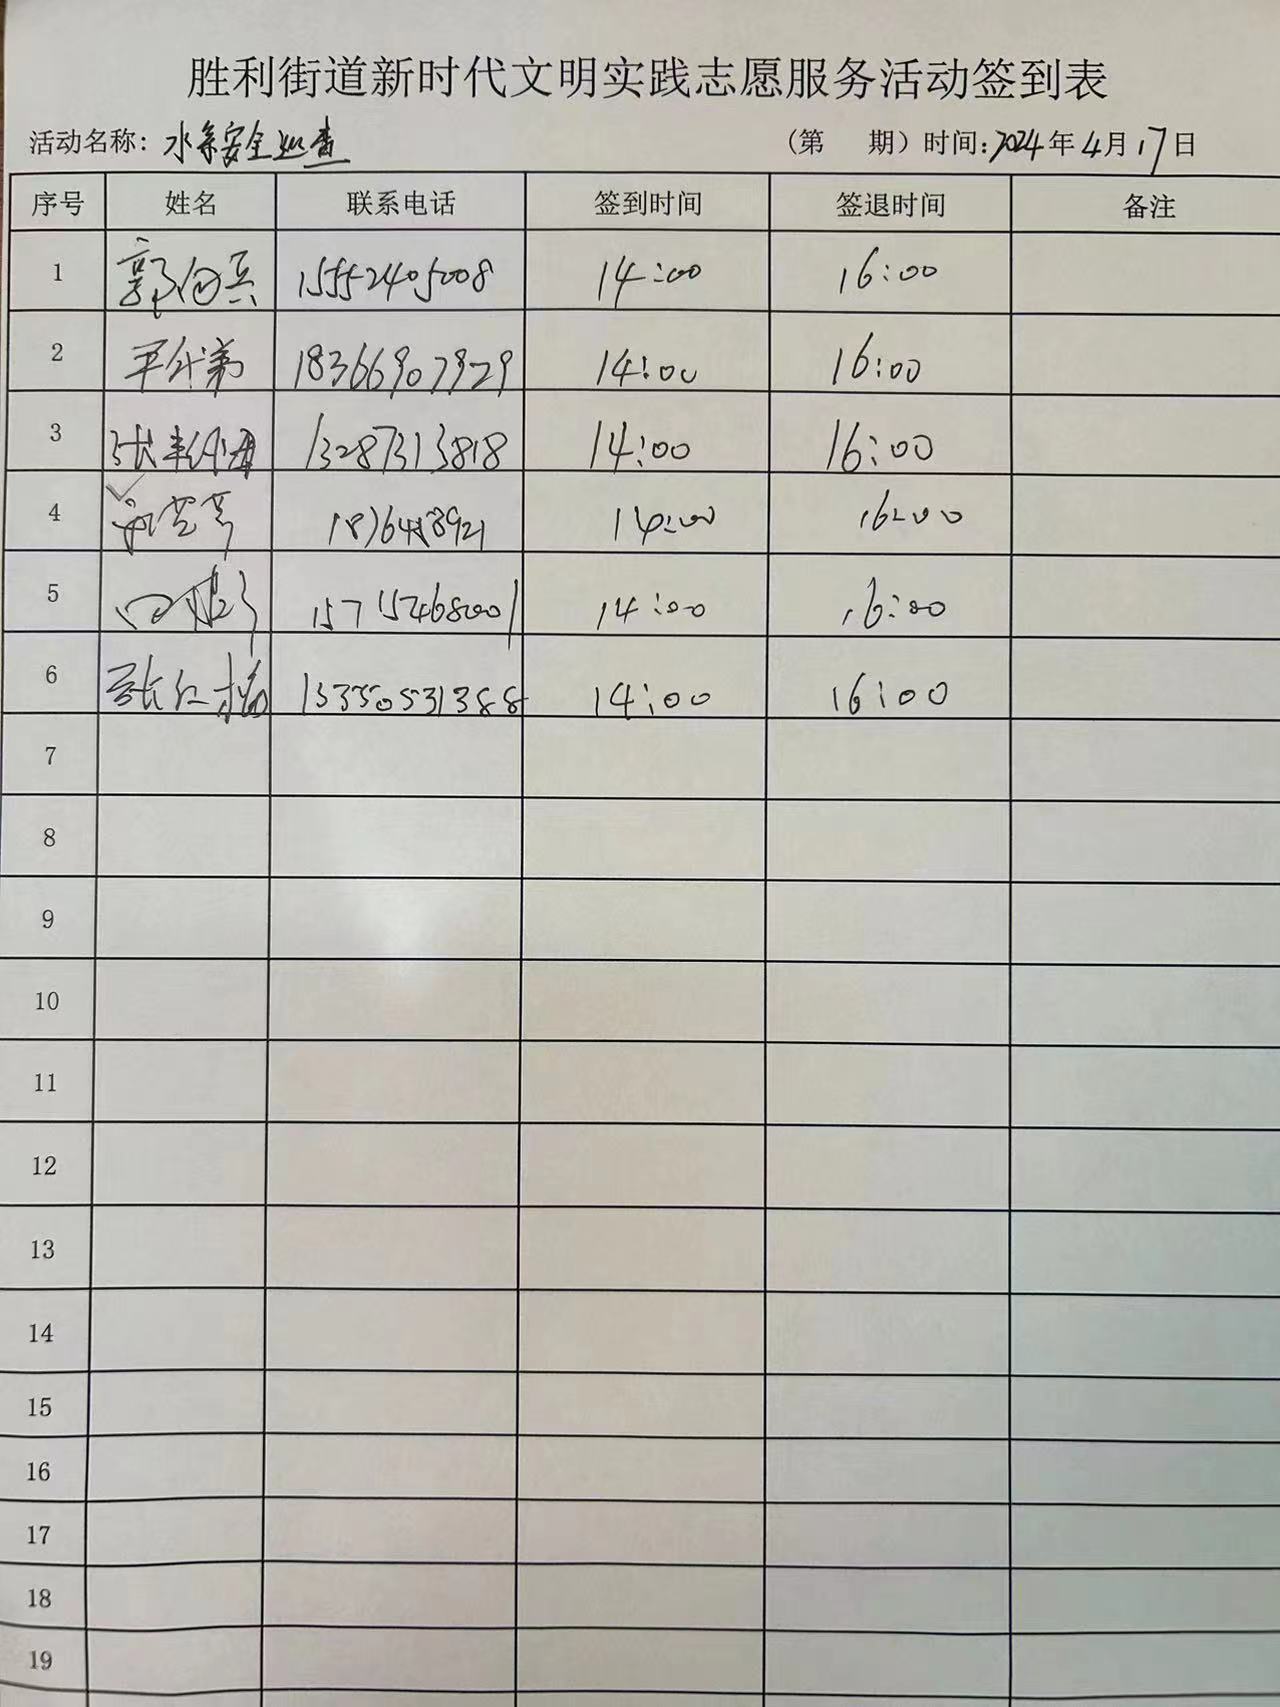 胜利街道新时代文明实践志愿服务活动签到表
活动名称：水系安全巡查 （第 期）时间：2024年4月17日
序号 姓名 联系电话 签到时间 签退时间 备注
1 郭 兵 15552405008 14:00 16:00
2 18366907929 14:00 16:00
3 张 海 13287313818 14:00 16:00
4 14:00 16:00
5 15715468001 14:00 16:00
6 张红梅 13350531388 14:00 16:00
7
8
9
10
11
12
13
14
15
16
17
18
19